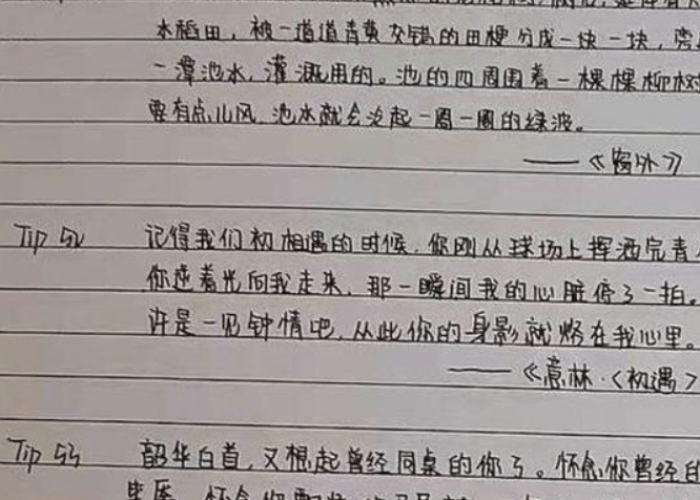 水稻田，被一道道青黄交错的田梗分成一块一块，旁
一潭池水，灌溉用的。池的四周围着一棵棵柳树
要有点儿风，池水就会泛起一圈一圈的绿波。
——《窗外》
Tip 52 记得我们初相遇的时候，你刚从球场上挥洒完青
你逆着光向我走来，那一瞬间我的心脏停了一拍
许是一见钟情吧，从此你的身影就烙在我心里。
——《意林·《初遇》
Tip 53 韶华白首，又想起曾经同桌的你了。怀念你曾经的